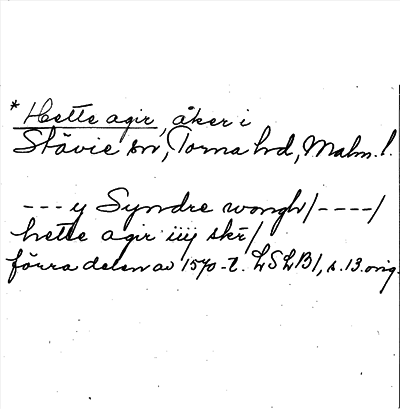 * Hette agir, åker i
Stävie sn, Torna hd, Malm. l.
--- y Syndre wongh/----/
hette agir iiij skr/
förra delen av 1570-t. LSLB1, s. 13. orig.